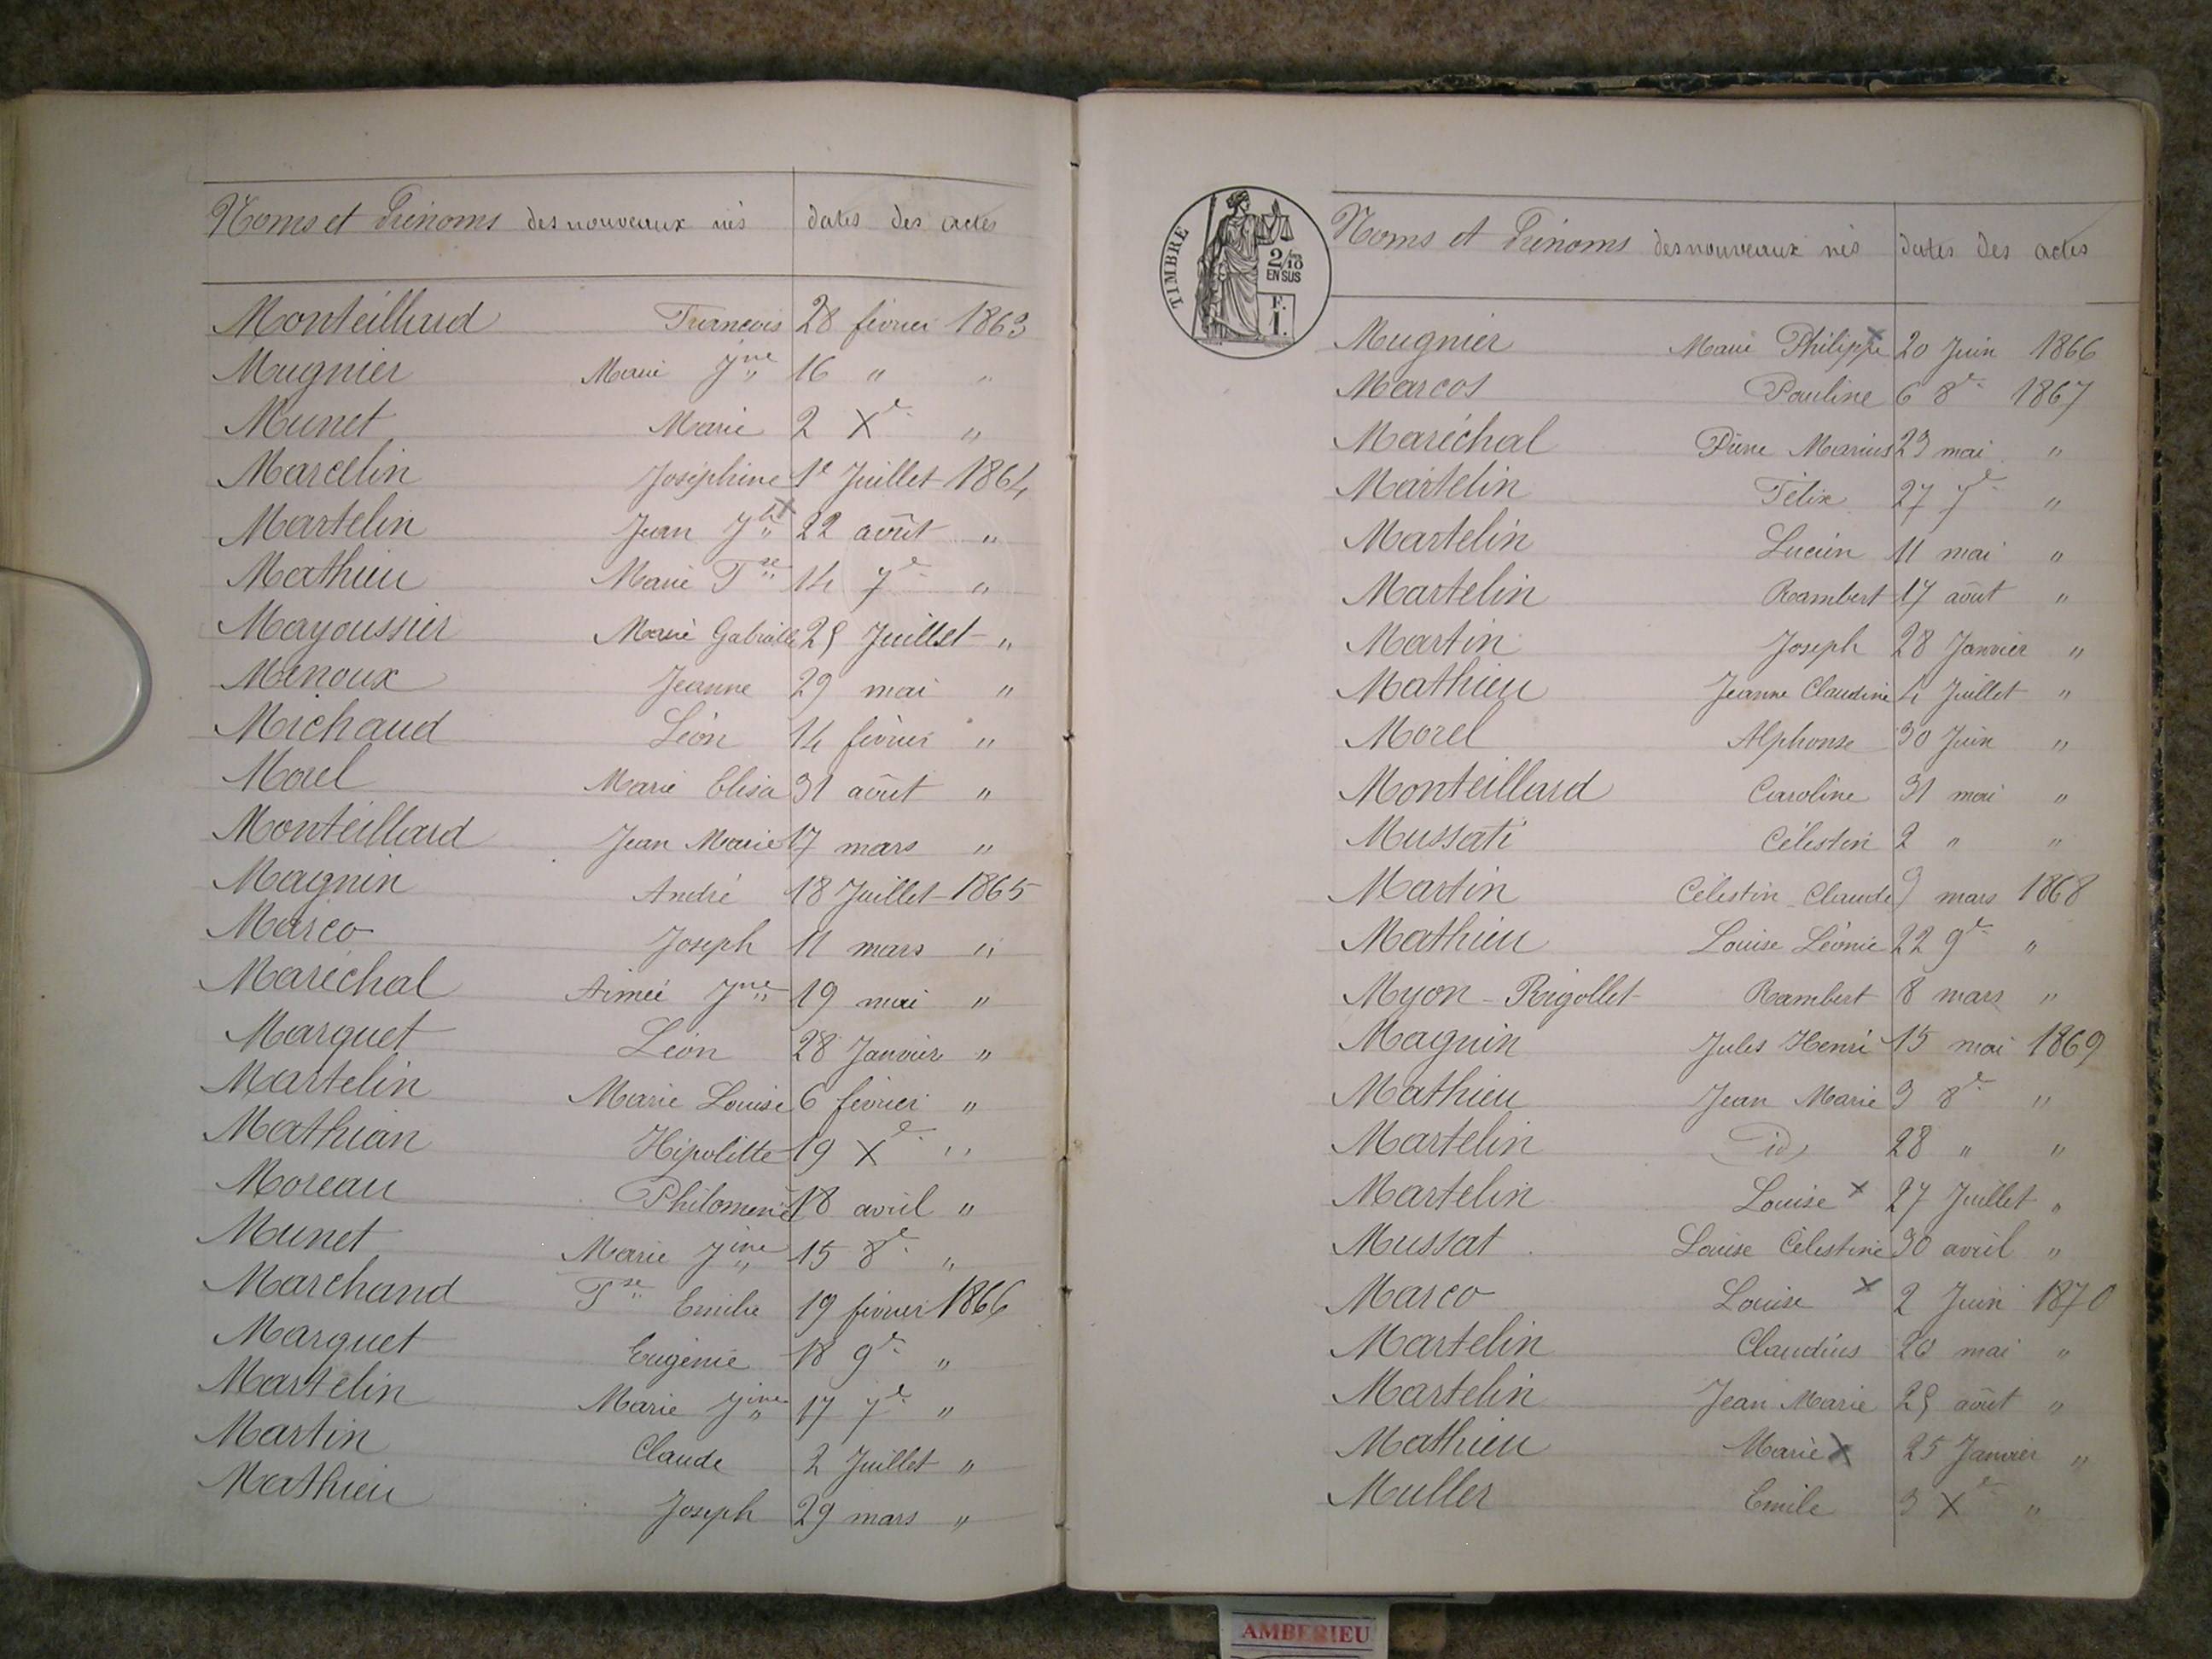 Noms et Prénoms des nouveaux nés dates des actes
Monteillard François 28 février 1863
Mugnier Marie Jne 16 " "
Munet Marie 2 Xe "
Marcelin Joséphine 1e Juillet 1864
Martelin Jean Jh x 22 août "
Mathieu Marie Fse 14 7e "
Mayoussier Marie Gabrielle 25 Juillet "
Menoux Jeanne 29 mai "
Michaud Léon 14 février "
Morel Marie Elisa 31 août "
Monteillard Jean Marie 17 mars "
Magnin André 18 Juillet 1865
Marco Joseph 11 mars "
Maréchal Aimée Jne 19 mai "
Marquet Léon 28 Janvier "
Martelin Marie Louise 6 février "
Mathian Hipolitte 19 Xe "
Moreau Philomène 18 avril "
Munet Marie Jine 15 8e "
Marchand Fse Emilie 19 février 1866
Marquet Eugénie 18 9e "
Martelin Marie Jine 17 7e "
Martin Claude 2 Juillet "
Mathieu Joseph 29 mars "
TIMBRE
2/10
EN SUS
F.
1.
Noms et Prénoms des nouveaux nés dates des actes
Mugnier Marie Philippe x 20 Juin 1866
Marcos Pauline 6 8e 1867
Maréchal Pierre Marius 23 mai "
Martelin Félix 27 7e "
Martelin Lucien 11 mai "
Martelin Rambert 17 août "
Martin Joseph 28 Janvier "
Mathieu Jeanne Claudine 4 Juillet "
Morel Alphonse 30 Juin "
Monteillard Caroline 31 mai "
Mussati Célestin 2 " "
Martin Célestin Claude 9 mars 1868
Mathieu Louise Léonie 22 9e "
Myon-Rigollet Rambert 8 mars "
Magnin Jules Henri 15 mai 1869
Mathieu Jean Marie 3 8e "
Martelin id 28 " "
Martelin Louise x 27 Juillet "
Mussat Louise Célestine 30 avril "
Marco Louise x 2 Juin 1870
Martelin Claudius 20 mai "
Martelin Jean Marie 25 août "
Mathieu Marie x 25 Janvier "
Muller Emile 3 Xe "
AMBERIEU